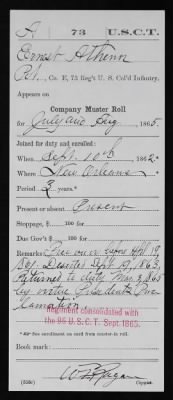 A 73 U.S.C.T.
Ernest Athenn
Pvt., Co. E, 73 Reg't U. S. Col'd Infantry.
Appears on
Company Muster Roll
for July and Aug, 1865.
Joined for duty and enrolled:
When Sept. 10th, 1862.*
Where New Orleans
Period 3 years.*
Present or absent Present
Stoppage, $ 100 for
Due Gov't $ 100 for
Remarks: Free own before Apl 19,
1861. Deserted Sept 19, 1863,
Returned to duty Mar 3, 1865
by virtue Presidents Proc
lamation
Regiment consolidated with
the 96 U.S.C.T. Sept. 1865.
Book mark:
(858c) Copyist.